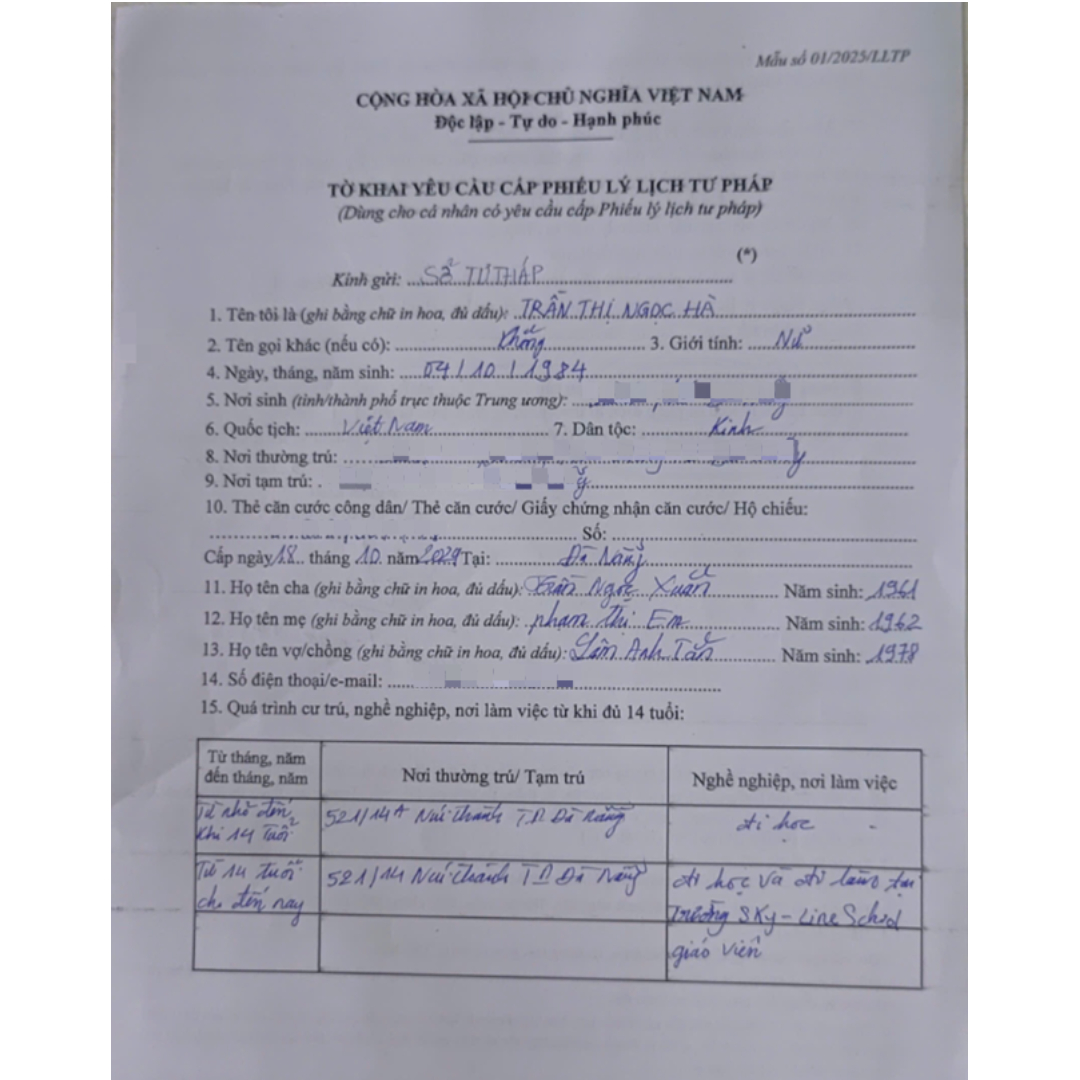 Mẫu số 01/2025/LLTP
CỘNG HÒA XÃ HỘI CHỦ NGHĨA VIỆT NAM
Độc lập - Tự do - Hạnh phúc
TỜ KHAI YÊU CẦU CẤP PHIẾU LÝ LỊCH TƯ PHÁP
(Dùng cho cá nhân có yêu cầu cấp Phiếu lý lịch tư pháp)
(*)
Kính gửi: SỞ TƯ PHÁP
1. Tên tôi là (ghi bằng chữ in hoa, đủ dấu): TRẦN THỊ NGỌC HÀ
2. Tên gọi khác (nếu có): Không 3. Giới tính: Nữ
4. Ngày, tháng, năm sinh: 04/10/1984
5. Nơi sinh (tỉnh/thành phố trực thuộc Trung ương):
6. Quốc tịch: Việt Nam 7. Dân tộc: Kinh
8. Nơi thường trú:
9. Nơi tạm trú:
10. Thẻ căn cước công dân/ Thẻ căn cước/ Giấy chứng nhận căn cước/ Hộ chiếu:
Số:
Cấp ngày 18 tháng 10 năm Tại: Đà Nẵng
11. Họ tên cha (ghi bằng chữ in hoa, đủ dấu): Trần Ngọc Xuân Năm sinh: 1961
12. Họ tên mẹ (ghi bằng chữ in hoa, đủ dấu): phạm Thị Em Năm sinh: 1962
13. Họ tên vợ/chồng (ghi bằng chữ in hoa, đủ dấu): Anh Năm sinh: 1978
14. Số điện thoại/e-mail:
15. Quá trình cư trú, nghề nghiệp, nơi làm việc từ khi đủ 14 tuổi:
Từ tháng, năm
đến tháng, năm
Nơi thường trú/ Tạm trú
Nghề nghiệp, nơi làm việc
Từ nhỏ đến
khi 14 tuổi
521/14A Núi Thành TP Đà Nẵng
đi học
Từ 14 tuổi
cho đến nay
521/14 Núi Thành TP Đà Nẵng
đi học và đi làm tại
Trường SKy-Line School
giáo viên